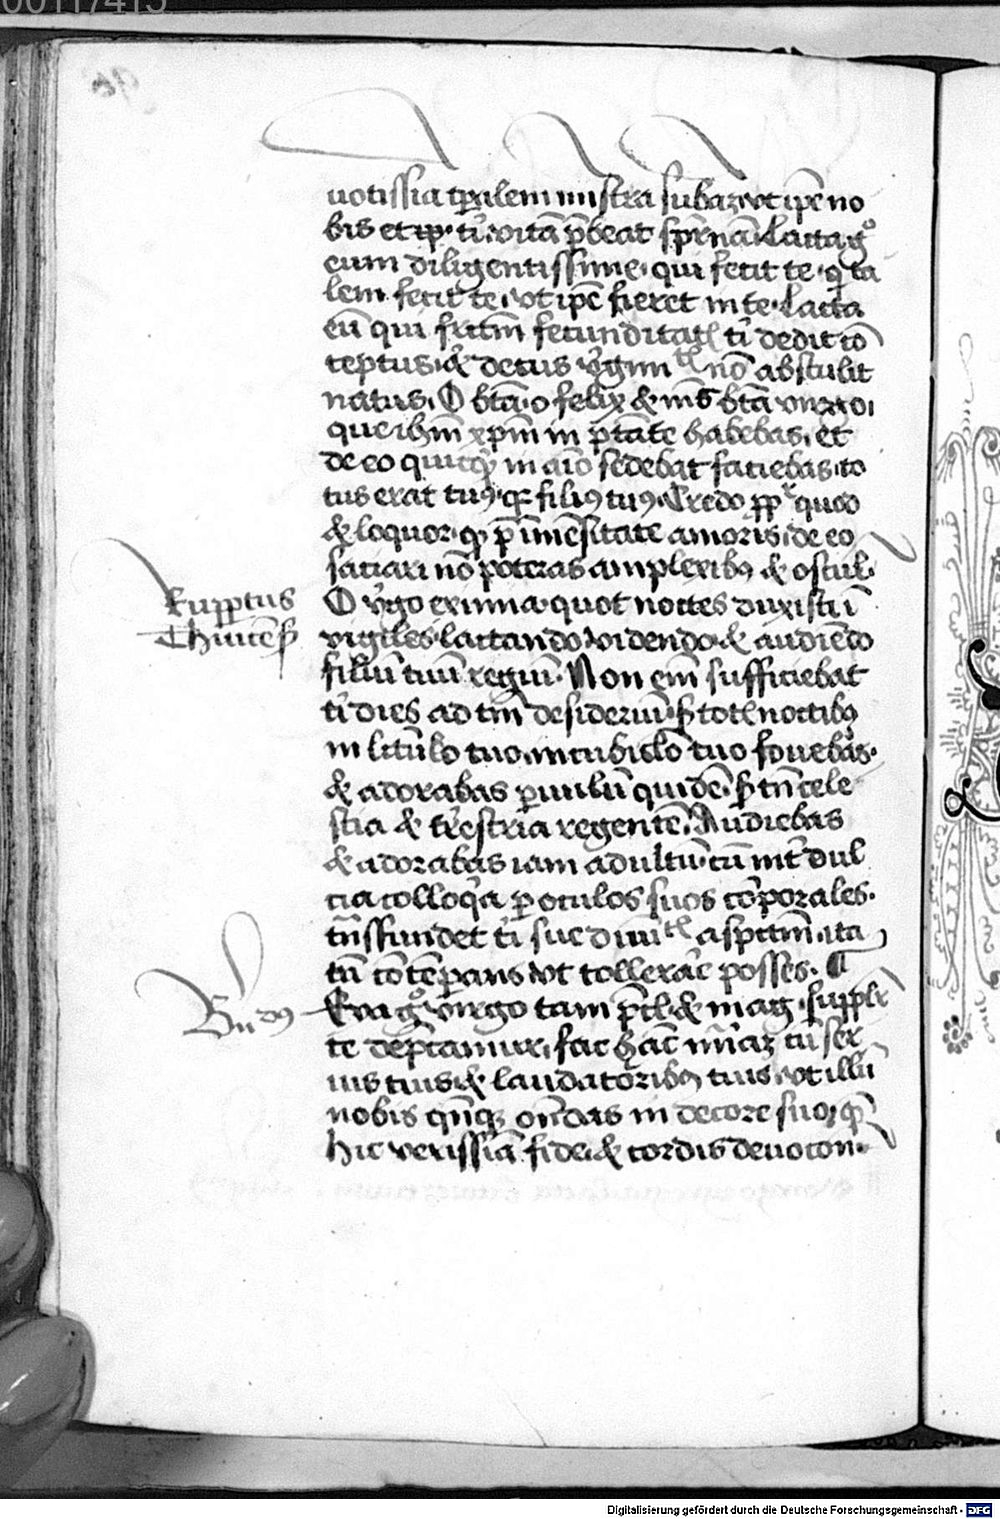 00117415
96
uotissīa tp̄alem mistra subaz vt ip̄e no
bis et ip̄ tī vitā p̄beat sp̄nāl. Lacta gͦ
eum diligentissime. qui fecit te. q̄ ta
lem fecit te. vt ip̄e fieret in te. Lacta
eū qui fr̄ctm̄ fecunditatꝭ tī dedit cō
ceptus. & decus v̓gnitꝭ nō abstulit
natus. O btā. o felix & mlͭ btā virgo.
que ihm̄ xp̄m in p̄tāte habebas. et
de eo quicq̄ in aīo sedebat faciebas. to
tus erat tuꝰ. qꝛ filiꝰ tuꝰ. Credo pp̄ꝛ quod
& loquor. qꝫ p̄ īmēsitate amoris. de eo
satiari nō poteras amplexibꝰ & oscul.
Rup̱p̱tus
Thuicēs̄
O v̓go eximia. quot noctes duxisti ī
vigiles. lactando. videndo. & audiēdo
filiū tuū regiū. Non em̄ sufficiebat
tī dies ad tm̄ desideriū. s̄ totꝭ noctibꝰ
in lectulo tuo. in cubiclo tuo fouebas.
& adorabas ꝑuulū quidē. s̄ tn̄ cele
stia & tr̄estria regentē. Audiebas
& adorabas iam adultū. cū int̄ dul
cia colloq̓a ꝑ oculos suos corꝑales.
tn̄sfundet tī sue diuitꝭ aspcm̄. ita
tn̄ cōtēꝑans vt tollerae̓ posses. ¶
Bn̄dꝰ
Eia gͦ virgo tam p̄cl. & mag. supple
te dep̄camur. fac hāc mīaꝫ cū ser
uis tuis. & laudatoribꝰ tuis. vt illū
nobis qn̄qꝫ on̄das in decore suo. qē
hic verissīa fide. & cordis deuocon.
Digitalisierung gefördert durch die Deutsche Forschungsgemeinschaft - DFG